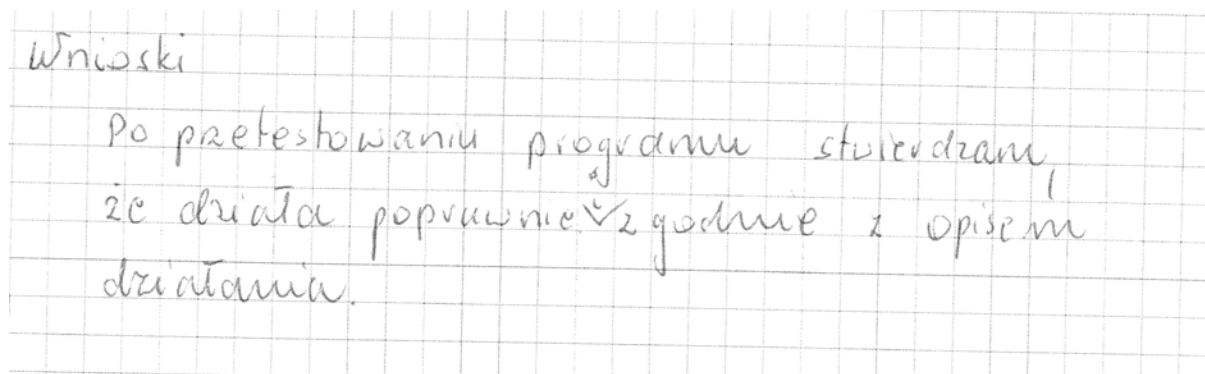 Wnioski
Po przetestowaniu programu stwierdzam,
że działa poprawnie i zgodnie z opisem
działania.